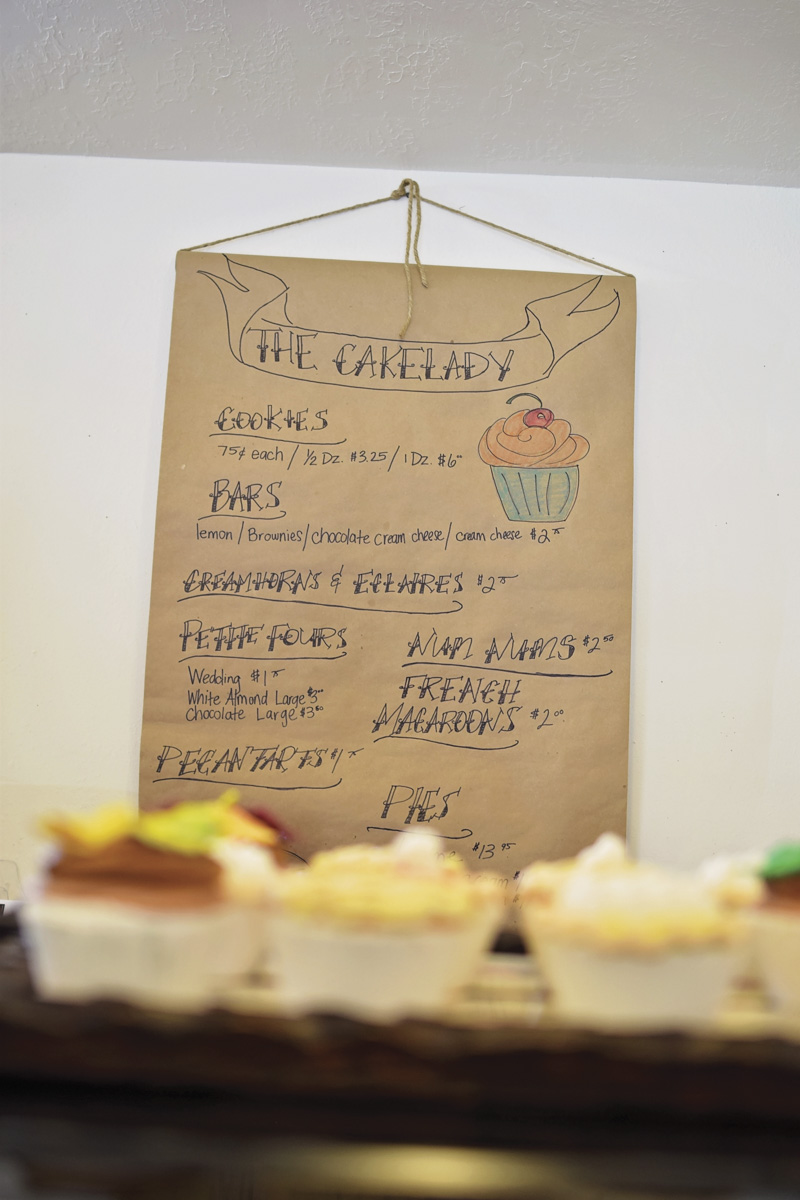 THE CAKELADY
COOKIES
75¢ each / ½ Dz. $3.25 / 1 Dz. $6⁰⁰
BARS
lemon / Brownies / chocolate cream cheese / cream cheese $2⁷⁵
CREAMHORNS & ECLAIRES $2⁷⁵
PETITE FOURS
Wedding $1⁷⁵
White Almond Large $3⁰⁰
Chocolate Large $3⁵⁰
NUM NUMS $2⁵⁰
FRENCH
MACAROONS $2⁰⁰
PECAN TARTS $1⁷⁵
PIES
$13⁹⁵